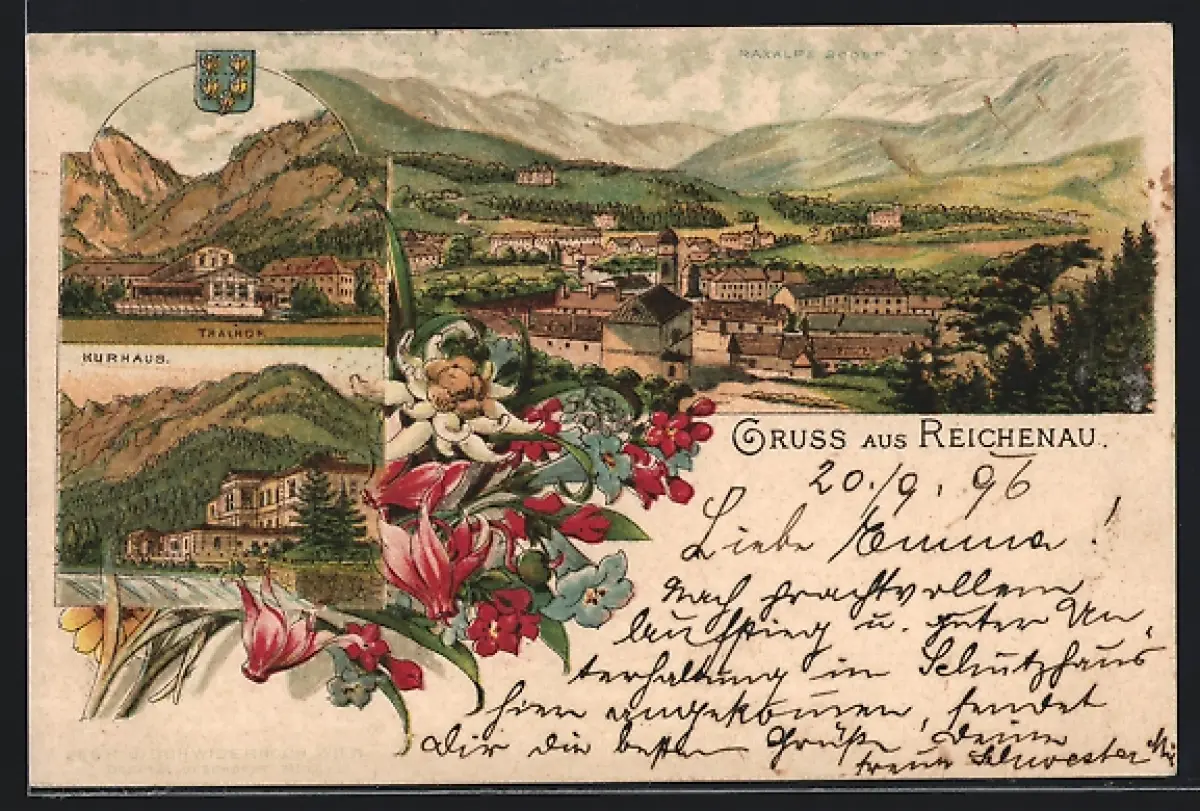 RAXALPE 2009M
THALHOF.
KURHAUS.
GRUSS AUS REICHENAU.
20./9. 96
Liebe Emma!
Nach prachtvollem
Aufstieg u. guter Un-
terhaltung im Schutzhaus
hier angekommen, sendet
Dir die besten Grüße Deine
treue Schwester